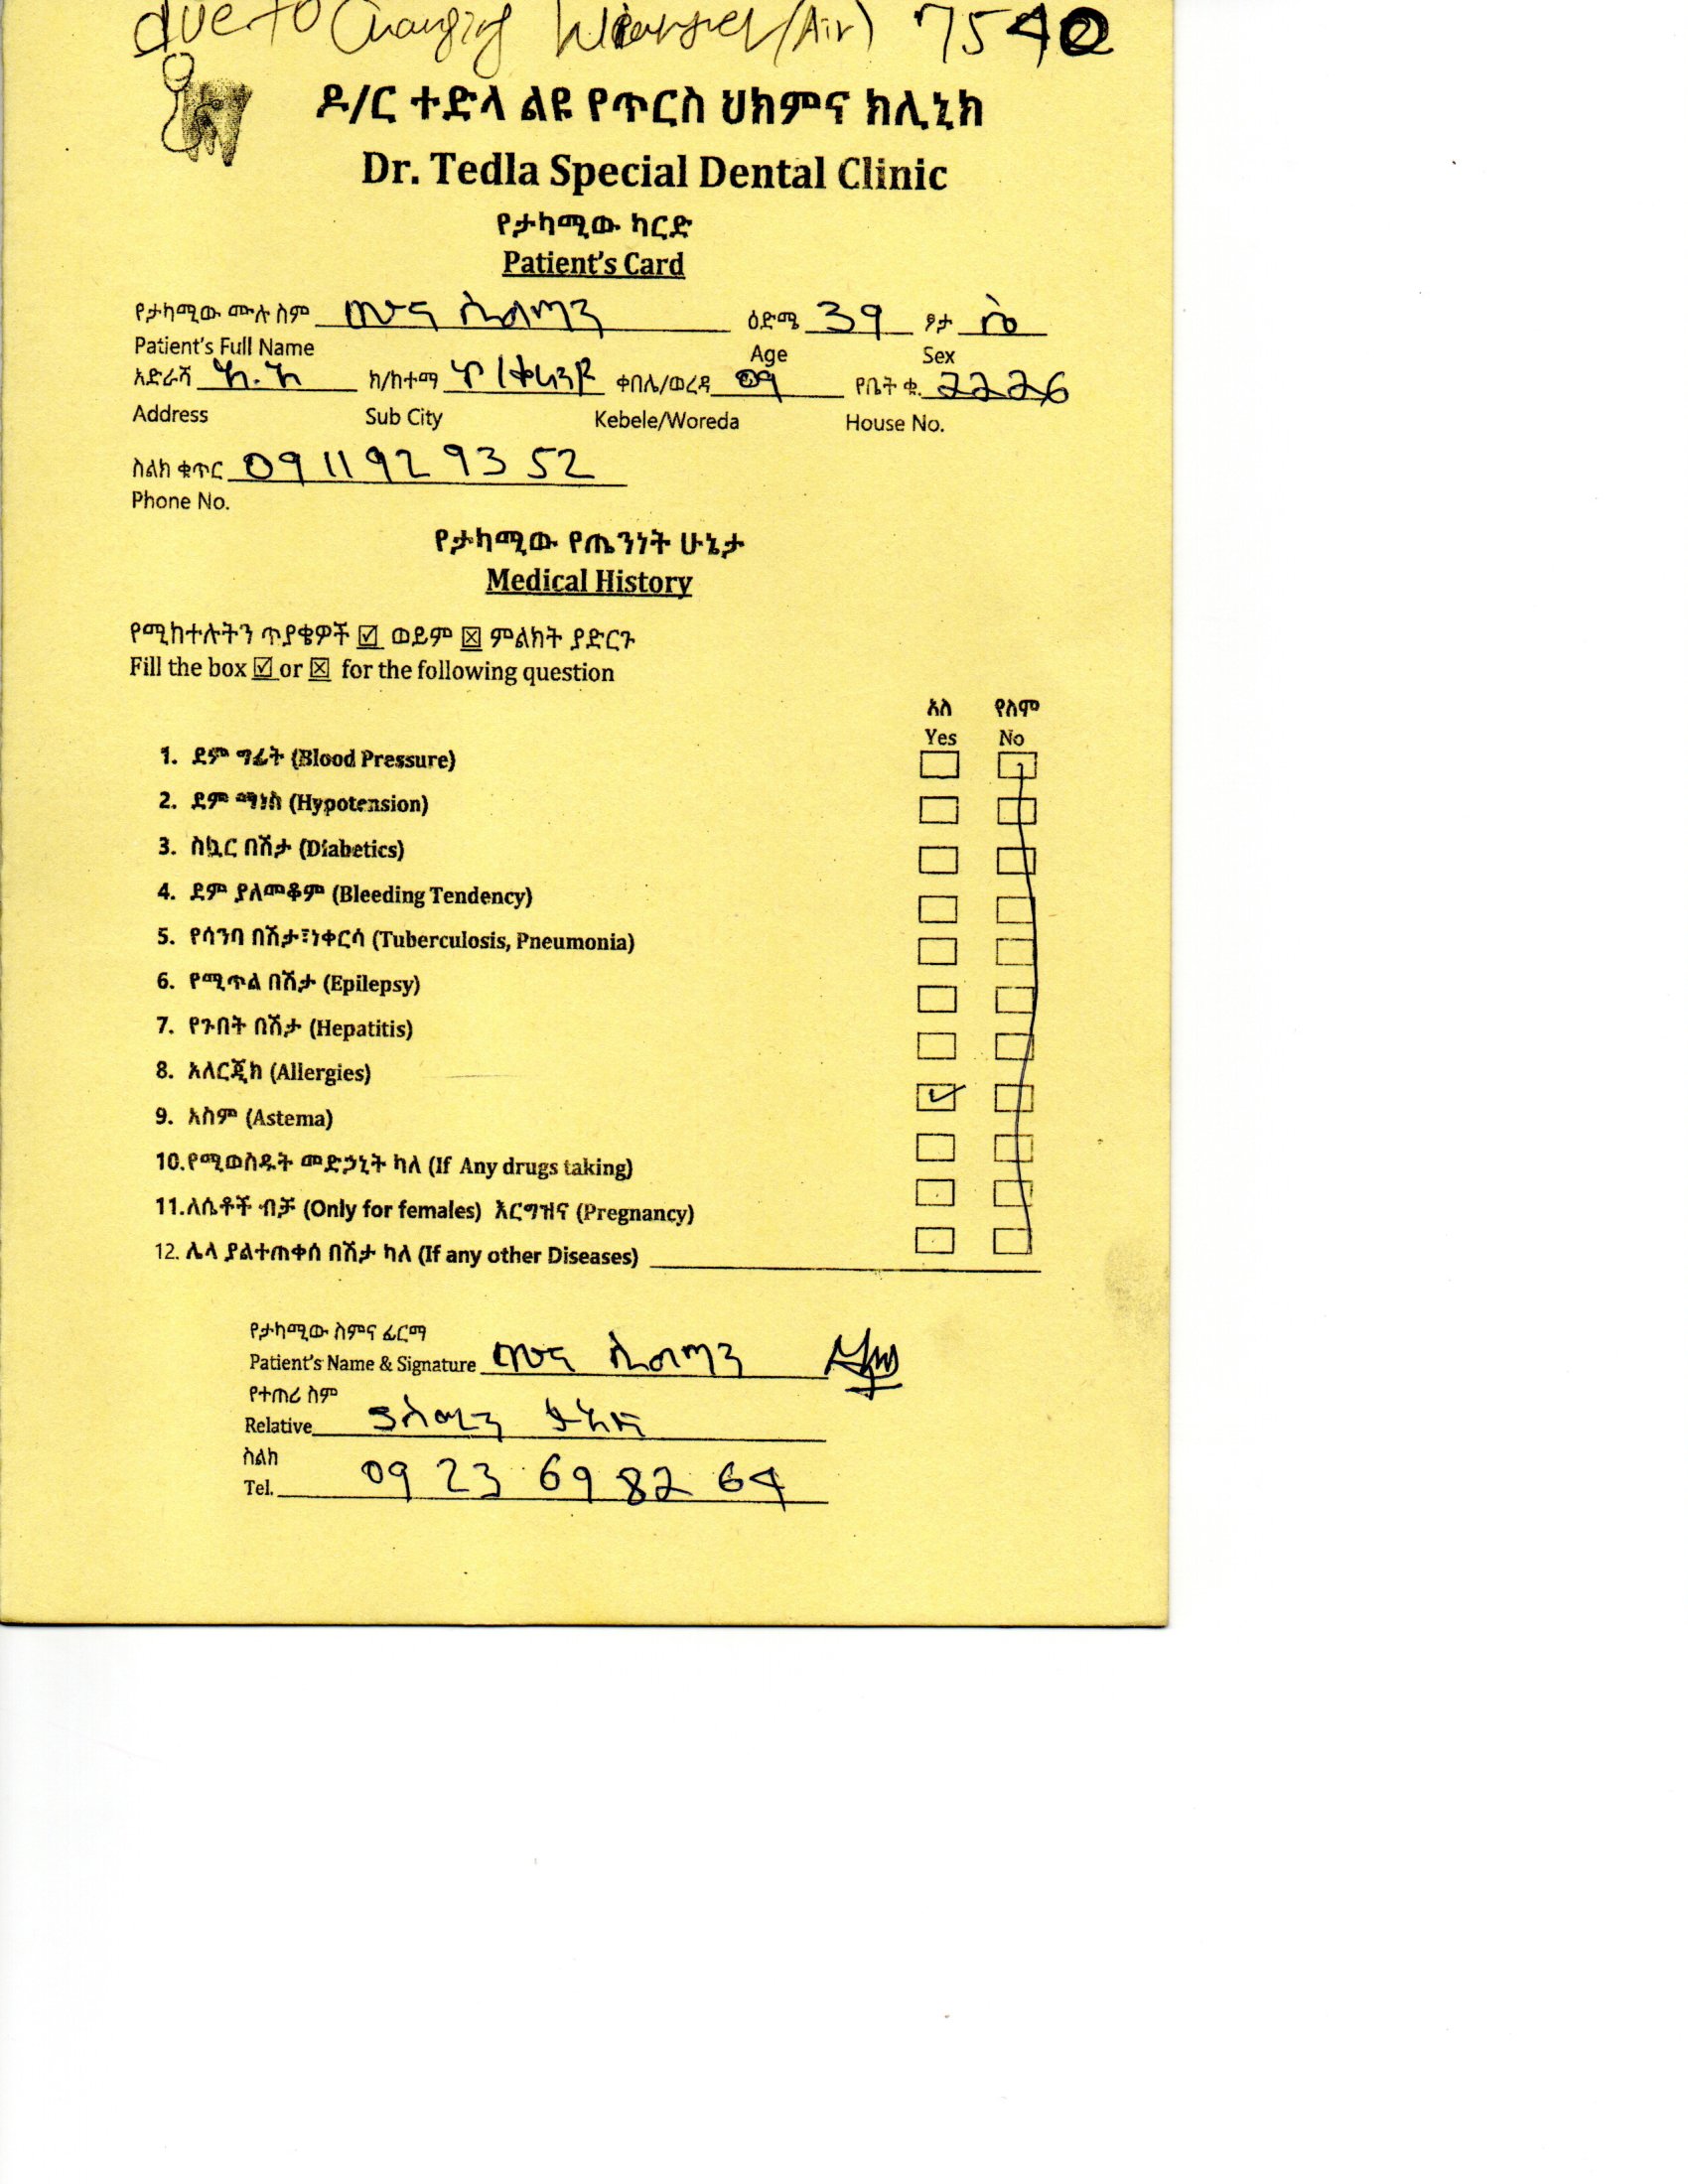 due to Changing (Air) 7540
ዶ/ር ተድላ ልዩ የጥርስ ህክምና ክሊኒክ
Dr. Tedla Special Dental Clinic
የታካሚው ካርድ
Patient's Card
የታካሚው ሙሉ ስም ሙና ሱልማን ዕድሜ 39 ፆታ ሴ
Patient's Full Name Age Sex
አድራሻ አ.አ ክ/ከተማ ቀበሌ/ወረዳ 09 የቤት ቁ. 2226
Address Sub City Kebele/Woreda House No.
ስልክ ቁጥር 0911 92 93 52
Phone No.
የታካሚው የጤንነት ሁኔታ
Medical History
የሚከተሉትን ጥያቄዎች ☑ ወይም ☒ ምልክት ያድርጉ
Fill the box ☑ or ☒ for the following question
አለ የለም
Yes No
1. ደም ግፊት (Blood Pressure)
2. ደም ማነስ (Hypotension)
3. ስኳር በሽታ (Diabetics)
4. ደም ያለመቆም (Bleeding Tendency)
5. የሳንባ በሽታ፣ነቀርሳ (Tuberculosis, Pneumonia)
6. የሚጥል በሽታ (Epilepsy)
7. የጉበት በሽታ (Hepatitis)
8. አለርጂክ (Allergies)
9. አስም (Astema)
10.የሚወስዱት መድኃኒት ካለ (If Any drugs taking)
11.ለሴቶች ብቻ (Only for females) እርግዝና (Pregnancy)
12. ሌላ ያልተጠቀሰ በሽታ ካለ (If any other Diseases)
የታካሚው ስምና ፊርማ
Patient's Name & Signature ሙና ሱልማን
የተጠሪ ስም
Relative
ስልክ
Tel. 09 23 69 82 64